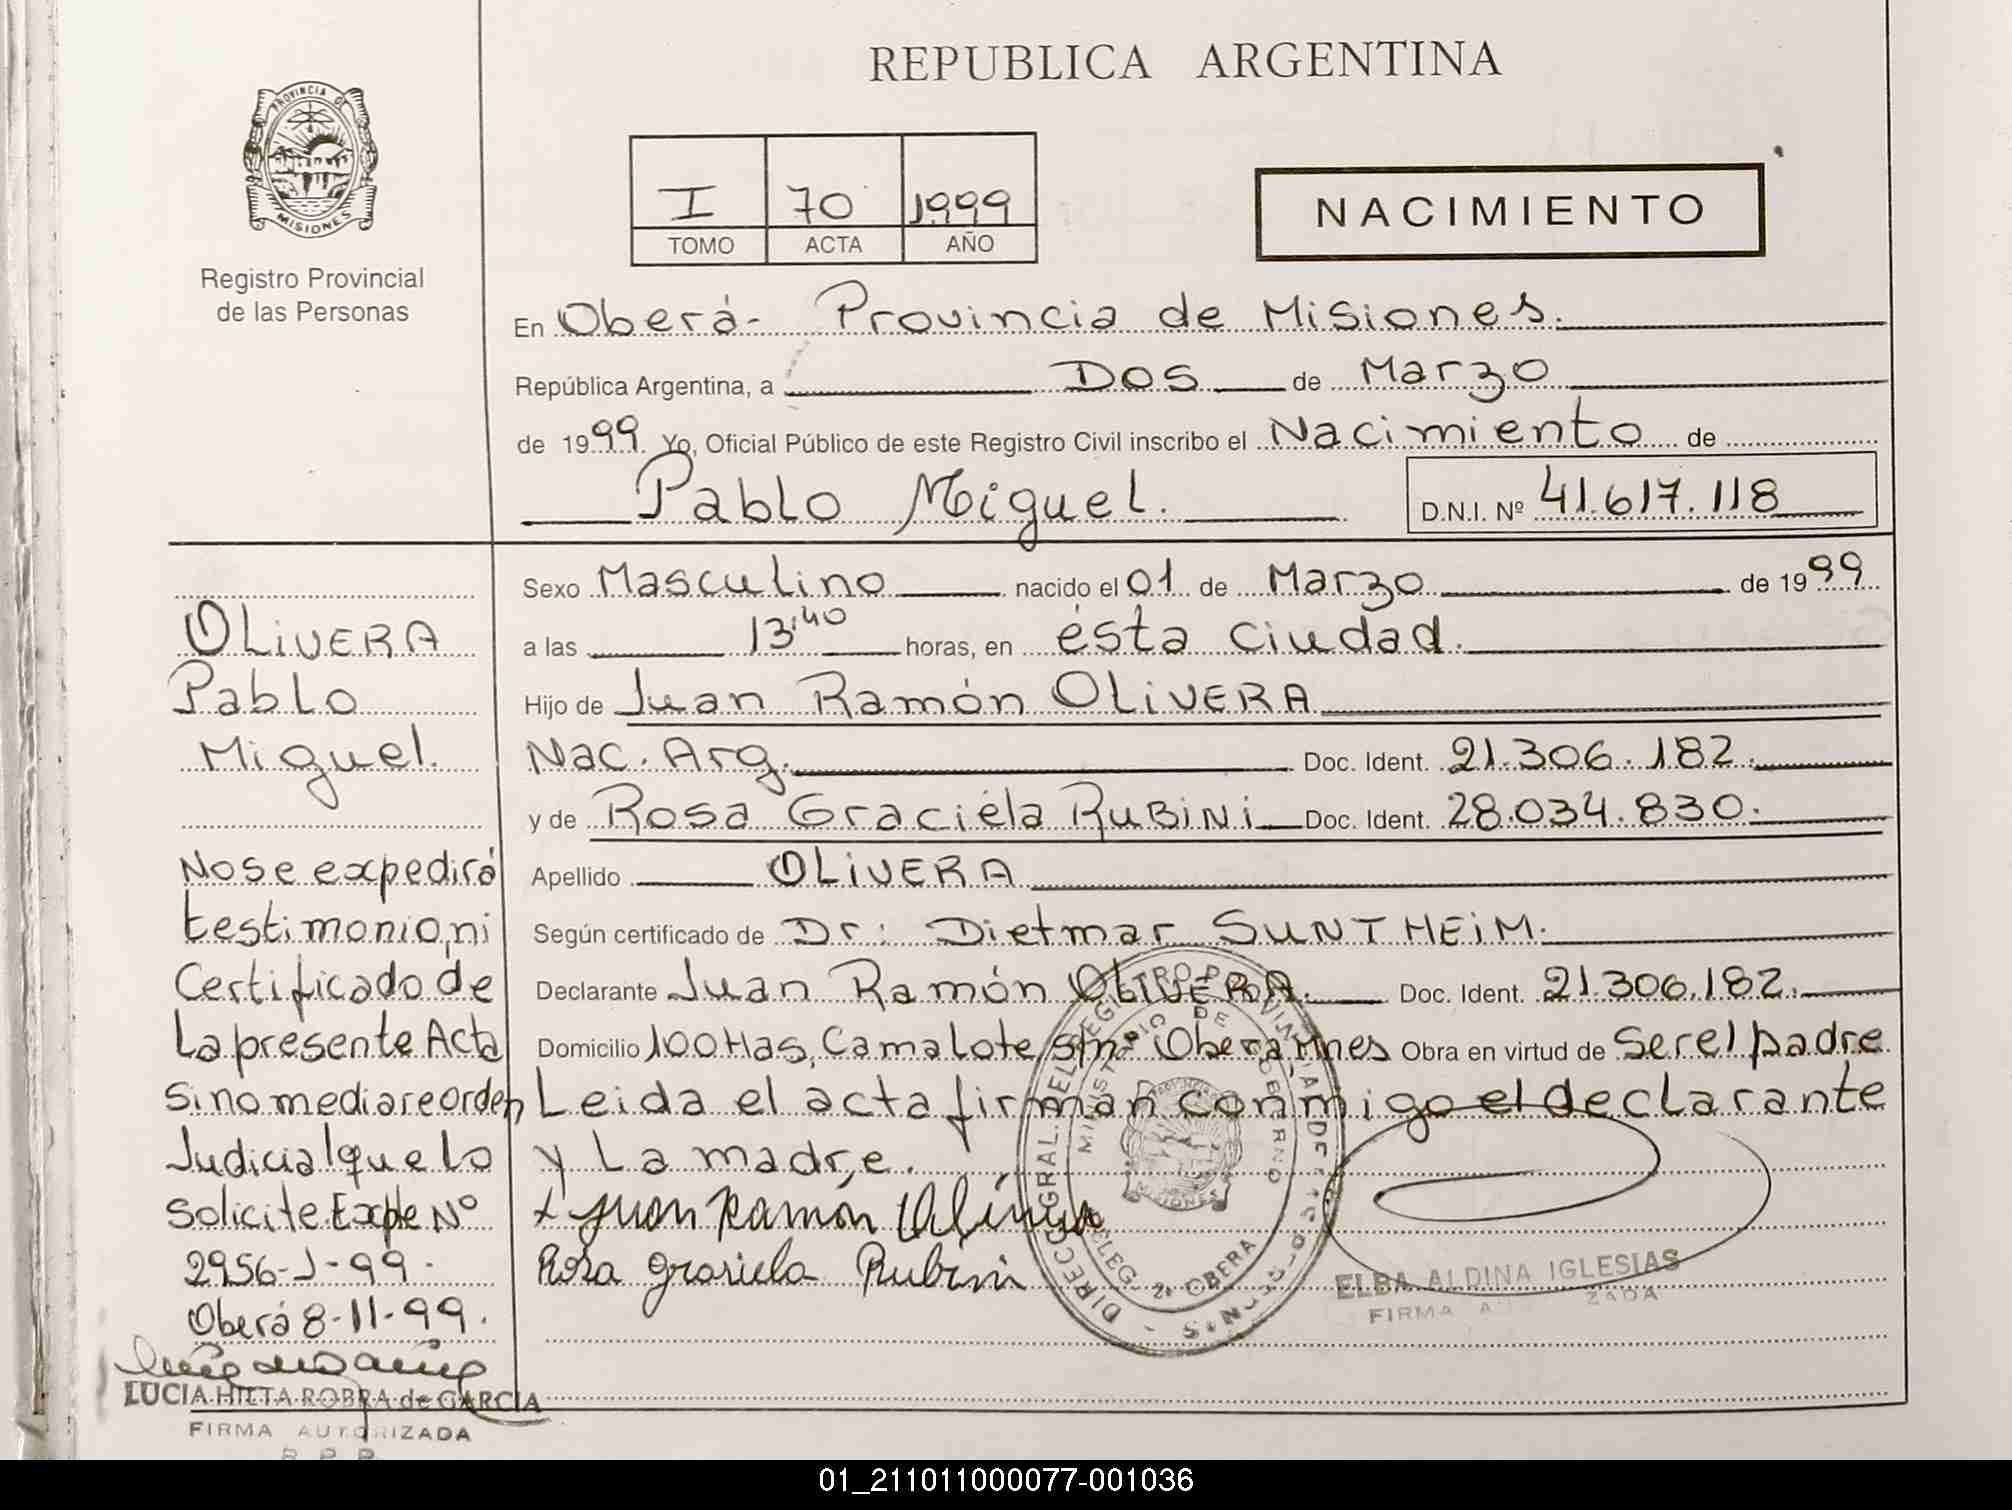 REPUBLICA ARGENTINA
PROVINCIA DE
MISIONES
Registro Provincial
de las Personas
I 70 1999
TOMO ACTA AÑO
NACIMIENTO
En Oberá - Provincia de Misiones.
República Argentina, a Dos de Marzo
de 1999 Yo, Oficial Público de este Registro Civil inscribo el Nacimiento de
Pablo Miguel. D.N.I. Nº 41.617.118
Sexo Masculino nacido el 01 de Marzo de 1999
a las 13:40 horas, en ésta ciudad.
Hijo de Juan Ramón OLIVERA
Nac. Arg. Doc. Ident. 21.306.182.
y de Rosa Graciela RUBINI Doc. Ident. 28.034.830.
Apellido OLIVERA
Según certificado de Dr: Dietmar SUNTHEIM.
Declarante Juan Ramón OLIVERA. Doc. Ident. 21.306.182.
Domicilio 100 Has, Camalote, s/nº Oberá, Mnes Obra en virtud de Ser el padre
Leida el acta firman conmigo el declarante
y La madre.
x Juan Ramón Olivera
Rosa Grasiela Rubini
ELBA ALDINA IGLESIAS
FIRMA AUTORIZADA
MINISTERIO DE GOBIERNO
MISIONES
DELEG. 2. OBERA
OLIVERA
Pablo
Miguel.
No se expedirá
testimonio, ni
Certificado de
La presente Acta
Si no mediare orden
Judicial que lo
Solicite Expte Nº
2956-J-99.
Oberá 8-11-99.
LUCIA HILTA ROBRA de GARCIA
FIRMA AUTORIZADA
R P P
01_211011000077-001036